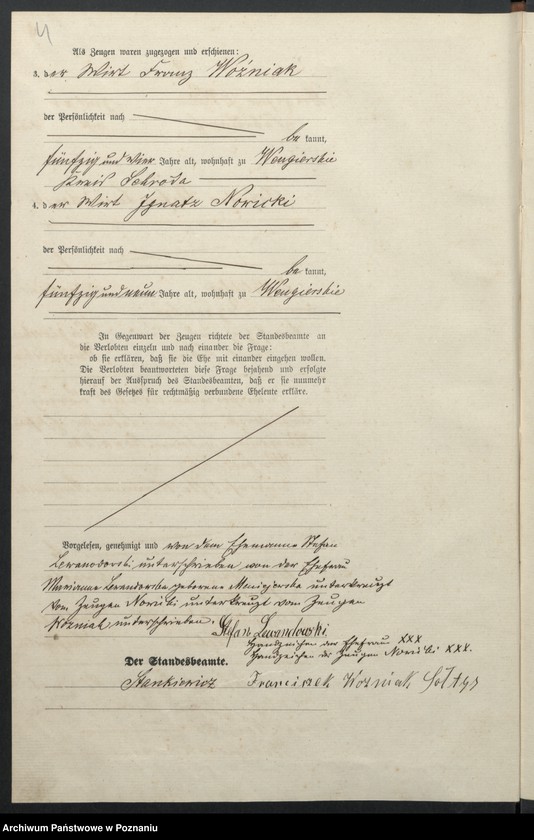 4
Als Zeugen waren zugezogen und erschienen:
3. der Wirt Franz Woźniak
der Persönlichkeit nach
be kannt,
fünfzig und vier Jahre alt, wohnhaft zu Wengierskie
Kreis Schroda
4. der Wirt Ignatz Noricki
der Persönlichkeit nach
be kannt,
fünfzig und neun Jahre alt, wohnhaft zu Wengierskie
In Gegenwart der Zeugen richtete der Standesbeamte an
die Verlobten einzeln und nach einander die Frage:
ob sie erklären, daß sie die Ehe mit einander eingehen wollen.
Die Verlobten beantworteten diese Frage bejahend und erfolgte
hierauf der Ausspruch des Standesbeamten, daß er sie nunmehr
kraft des Gesetzes für rechtmäßig verbundene Eheleute erkläre.
Vorgelesen, genehmigt und von dem Ehemanne Stefan
unterschrieben von der Ehefrau
Marianna geborene unterkreuzt
vom Zeugen Noricki unterkreuzt vom Zeugen
Wozniak unterschrieben.
Stefan Lewandowski
Handzeichen der Ehefrau XXX
Handzeichen des Zeugen Noricki XXX.
Der Standesbeamte.
Stankiewicz
Franciszek Wozniak Sołtys
Archiwum Państwowe w Poznaniu